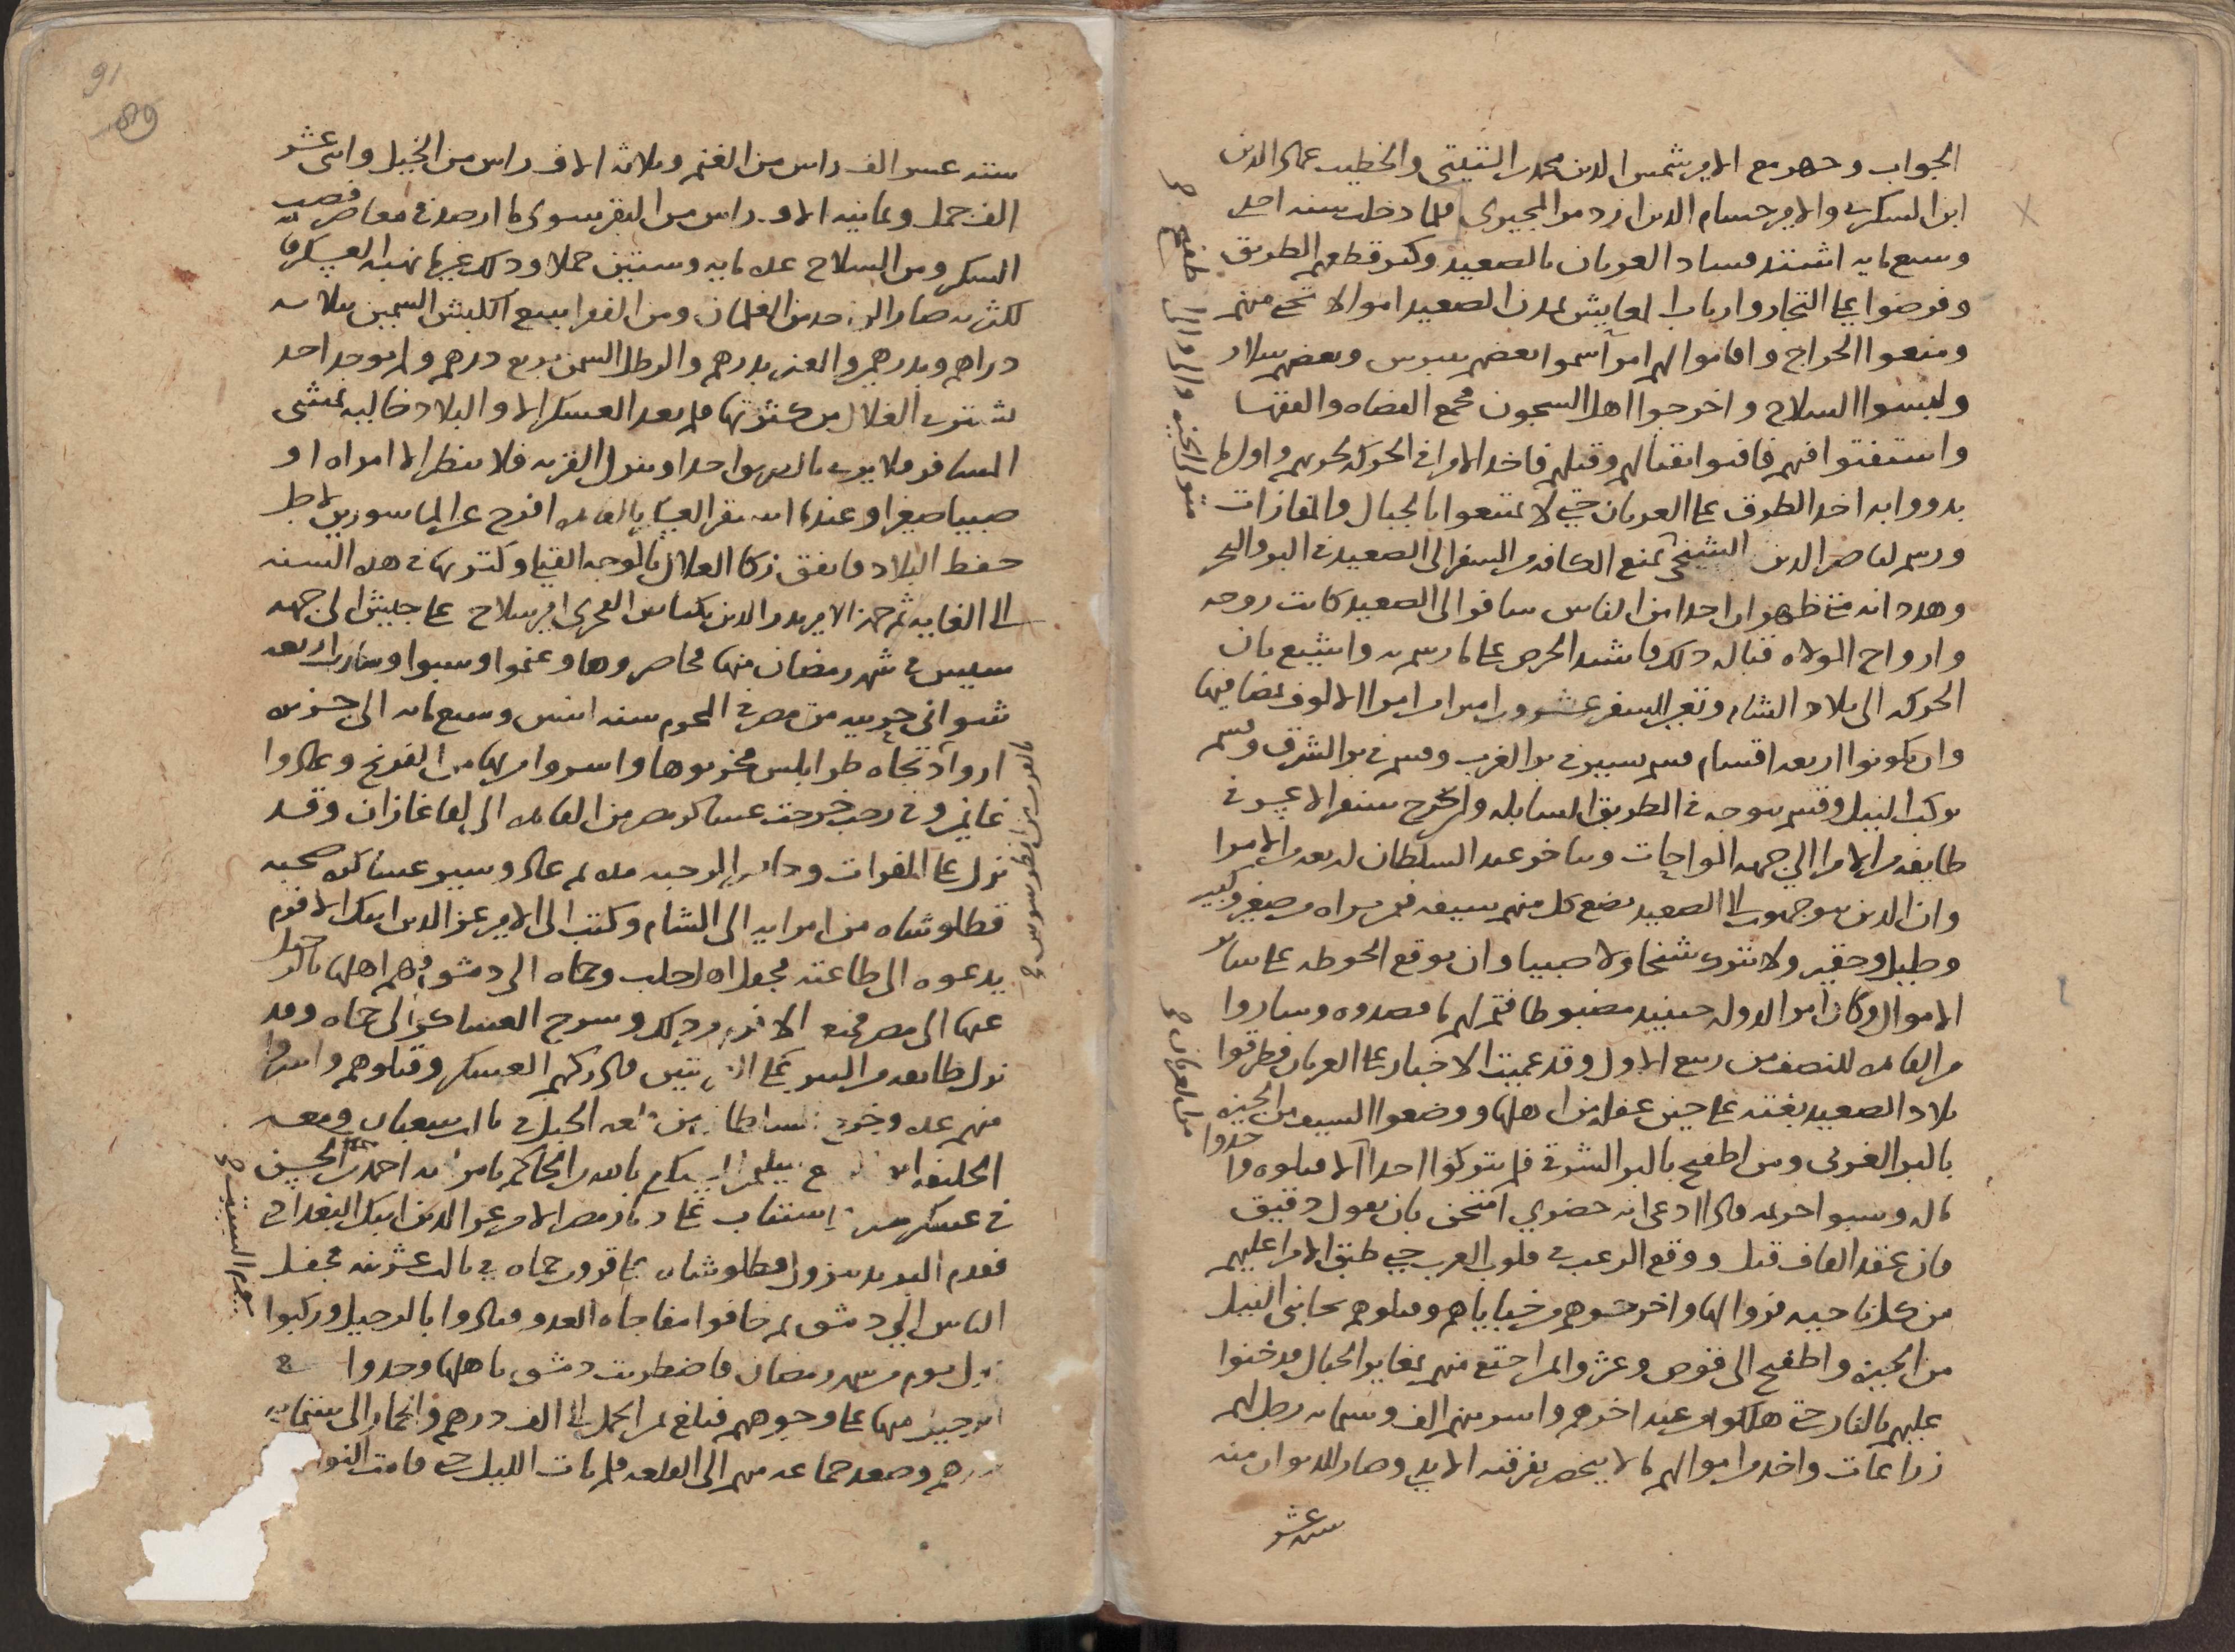 الجواب وجهز مع الامير شمس الدين محمد بن التيتي والخطيب عماد الدين
ابن السكري والامير حسام الدين ازدمر المجيري فلما دخلت سنه احدى
وسبع مايه اشتد فساد العربان بالصعيد وكثر قطعهم الطريق
وفرضوا على التجار وارباب المعايش بمدن الصعيد اموالا تحمى منهم
ومنعوا الخراج واقاموا لهم امرا سموا بعضهم بيبرس وبعضهم سلار
ولبسوا السلاح واخرجوا اهل السجون فجمع القضاه والفقها
واستفتوا فيهم فافتوا بقتالهم وقتلهم فاخذ الامرا في الحركة لحربهم واول ما
بدووا به اخذ الطرق على العربان حتى لا يمتنعوا بالجبال والمفازات
ورسم لناصر الدين الشيخي بمنع الكافه من السفر الى الصعيد في البر والبحر
وهدد انه متى ظهر ان احدا من الناس سافر الى الصعيد كانت روحه
وارواح الولاه قباله ذلك فاشتد الحرص على ما رسم به واشيع بان
الحركه الى بلاد الشام وتعين للسفر عشرون اميرا من امرا الالوف بمضافيها
وان يكونوا اربعه اقسام قسم يسير في بر الغرب وقسم في بر الشرق وقسم
يركب النيل وقسم يتوجه في الطريق السابله
طايفه من الامرا الى جهه الواحات وتاخر عند السلطان اربعه من الامرا
وان الذين يتوجهون الى الصعيد يضع كل منهم سيفه فمن يراه من صغير وكبير
وجليل وحقير ولا يتركوا شيخا ولا صبيا وان يوقع الحوطه على ساير
الاموال وكان امر الدوله حينيد مضبوطا فتم لهم ما قصدوه وساروا
من القاهره للنصف من ربيع الاول وقد عميت الاخبار على العربان فطرقوا
بلاد الصعيد بغته على حين غفله من اهلها ووضعوا السيف من الجيزه
بالبر الغربي ومن اطفيح بالبر الشرقي فلم يتركوا احدا الا قتلوه واخدوا
ماله وسبوا حريمه فاذا ادعى انه حضري امتحن بان يقول دقيق
فان عقد القاف قتل ووقع الرعب في قلوب العرب حتى طبق الامرا عليهم
من كل ناحيه فروا اليها واخرجوهم من خباياهم وقتلوهم بجانبي النيل
من الجيزه واطفيح الى قوص وعثروا لمن اختبى منهم بمغاير الجبال فدخنوا
عليهم بالنار حتى هلكوا عن اخرهم واسر منهم الف وستمايه رجل لهم
زراعات واخد من اموالهم ما لا ينحصر تفرقته الايدي وصار للديوان منه
سته عشر
مقتل اهل الجيزه والى
من العربان
91
89
سته عشر الف راس من الغنم وثلاثه الاف راس من الخيل واثنى عشر
الف جمل وثمانيه الاف راس من البقر سوى ما ارصد في معاصر قصب
السكر ومن السلاح عده مايه وستين حملا وذلك غير ما نهبه العسكر فا
لكثره صار الى حد من الغلمان ومن الفقرا يبيع الكبش السمين بثلاثه
دراهم وبدرهم والعنز بدرهم والرطل السمن بربع درهم ولم يوجد احد
يشتري الغلال من كثرتها فلم يعد العسكر الا والبلاد خاليه يمشي
المسافر فلا يرى بالدروب احدا وينزل القريه فلا ينظر الا امراه او
صبيا صغيرا وعندما استقر العساكر بالقاهره افرج عن الماسورين لاجل
حفظ البلاد فاتفق زكا الغلال بالوجه القبلي وكثرتها في هذه السنه
الى الغايه ثم جهز الامير بدر الدين بكتاش الفخري امير سلاح على جيش الى جهه
سيس في شهر رمضان منها فحاصروها وغنموا وسبوا وسارت اربعه
شواني حربيه من مصر في المحرم سنه اثنين وسبع مايه الى جزيره
ارواد تجاه طرابلس فخربوها واسروا من بها من الفرنج وعادوا
غانمين وفي رجب خرجت عساكر مصر من القاهره الى لقا غازان وقد
نزل على الفرات وجاز الى الرحبه ثم عاد وسير عساكره صحبه
قطلوشاه من امرايه الى الشام وكتب الى الامير عز الدين ايبك الافرم
يدعوه الى طاعته فجفل اهل حلب وحماه الى دمشق فهم اهلها بالرحيل
عنها الى مصر فمنعهم الافرم من ذلك وسرح العساكر الى حماه وقد
نزل طايفه من التتر على القريتين فادركهم العسكر وقتلوهم واسروا
منهم عده وخرج السلطان من قلعه الجبل في ثالث شعبان ومعه
الخليفه ابو الربيع سليمان المستكفي بالله بن الحاكم بامر الله احمد بن الحسن
في عسكر مصر واستناب على ديار مصر الامير عز الدين ايبك البغدادي
فقدم البريد بنزول قطلوشاه على قرون حماه في ثالث عشرينه فجفل
الناس الى دمشق لم خافوا مفاجاه العدو ونادوا بالرحيل وركبوا
اول يوم من شهر رمضان فاضطربت دمشق باهلها وجدوا في
الرحيل منها على وجوههم فبلغ ثمن الجمل الى الف درهم والحمار الى ستمايه
درهم وصعد جماعه منهم الى القلعه فلم يات الليل حتى قامت النوادب